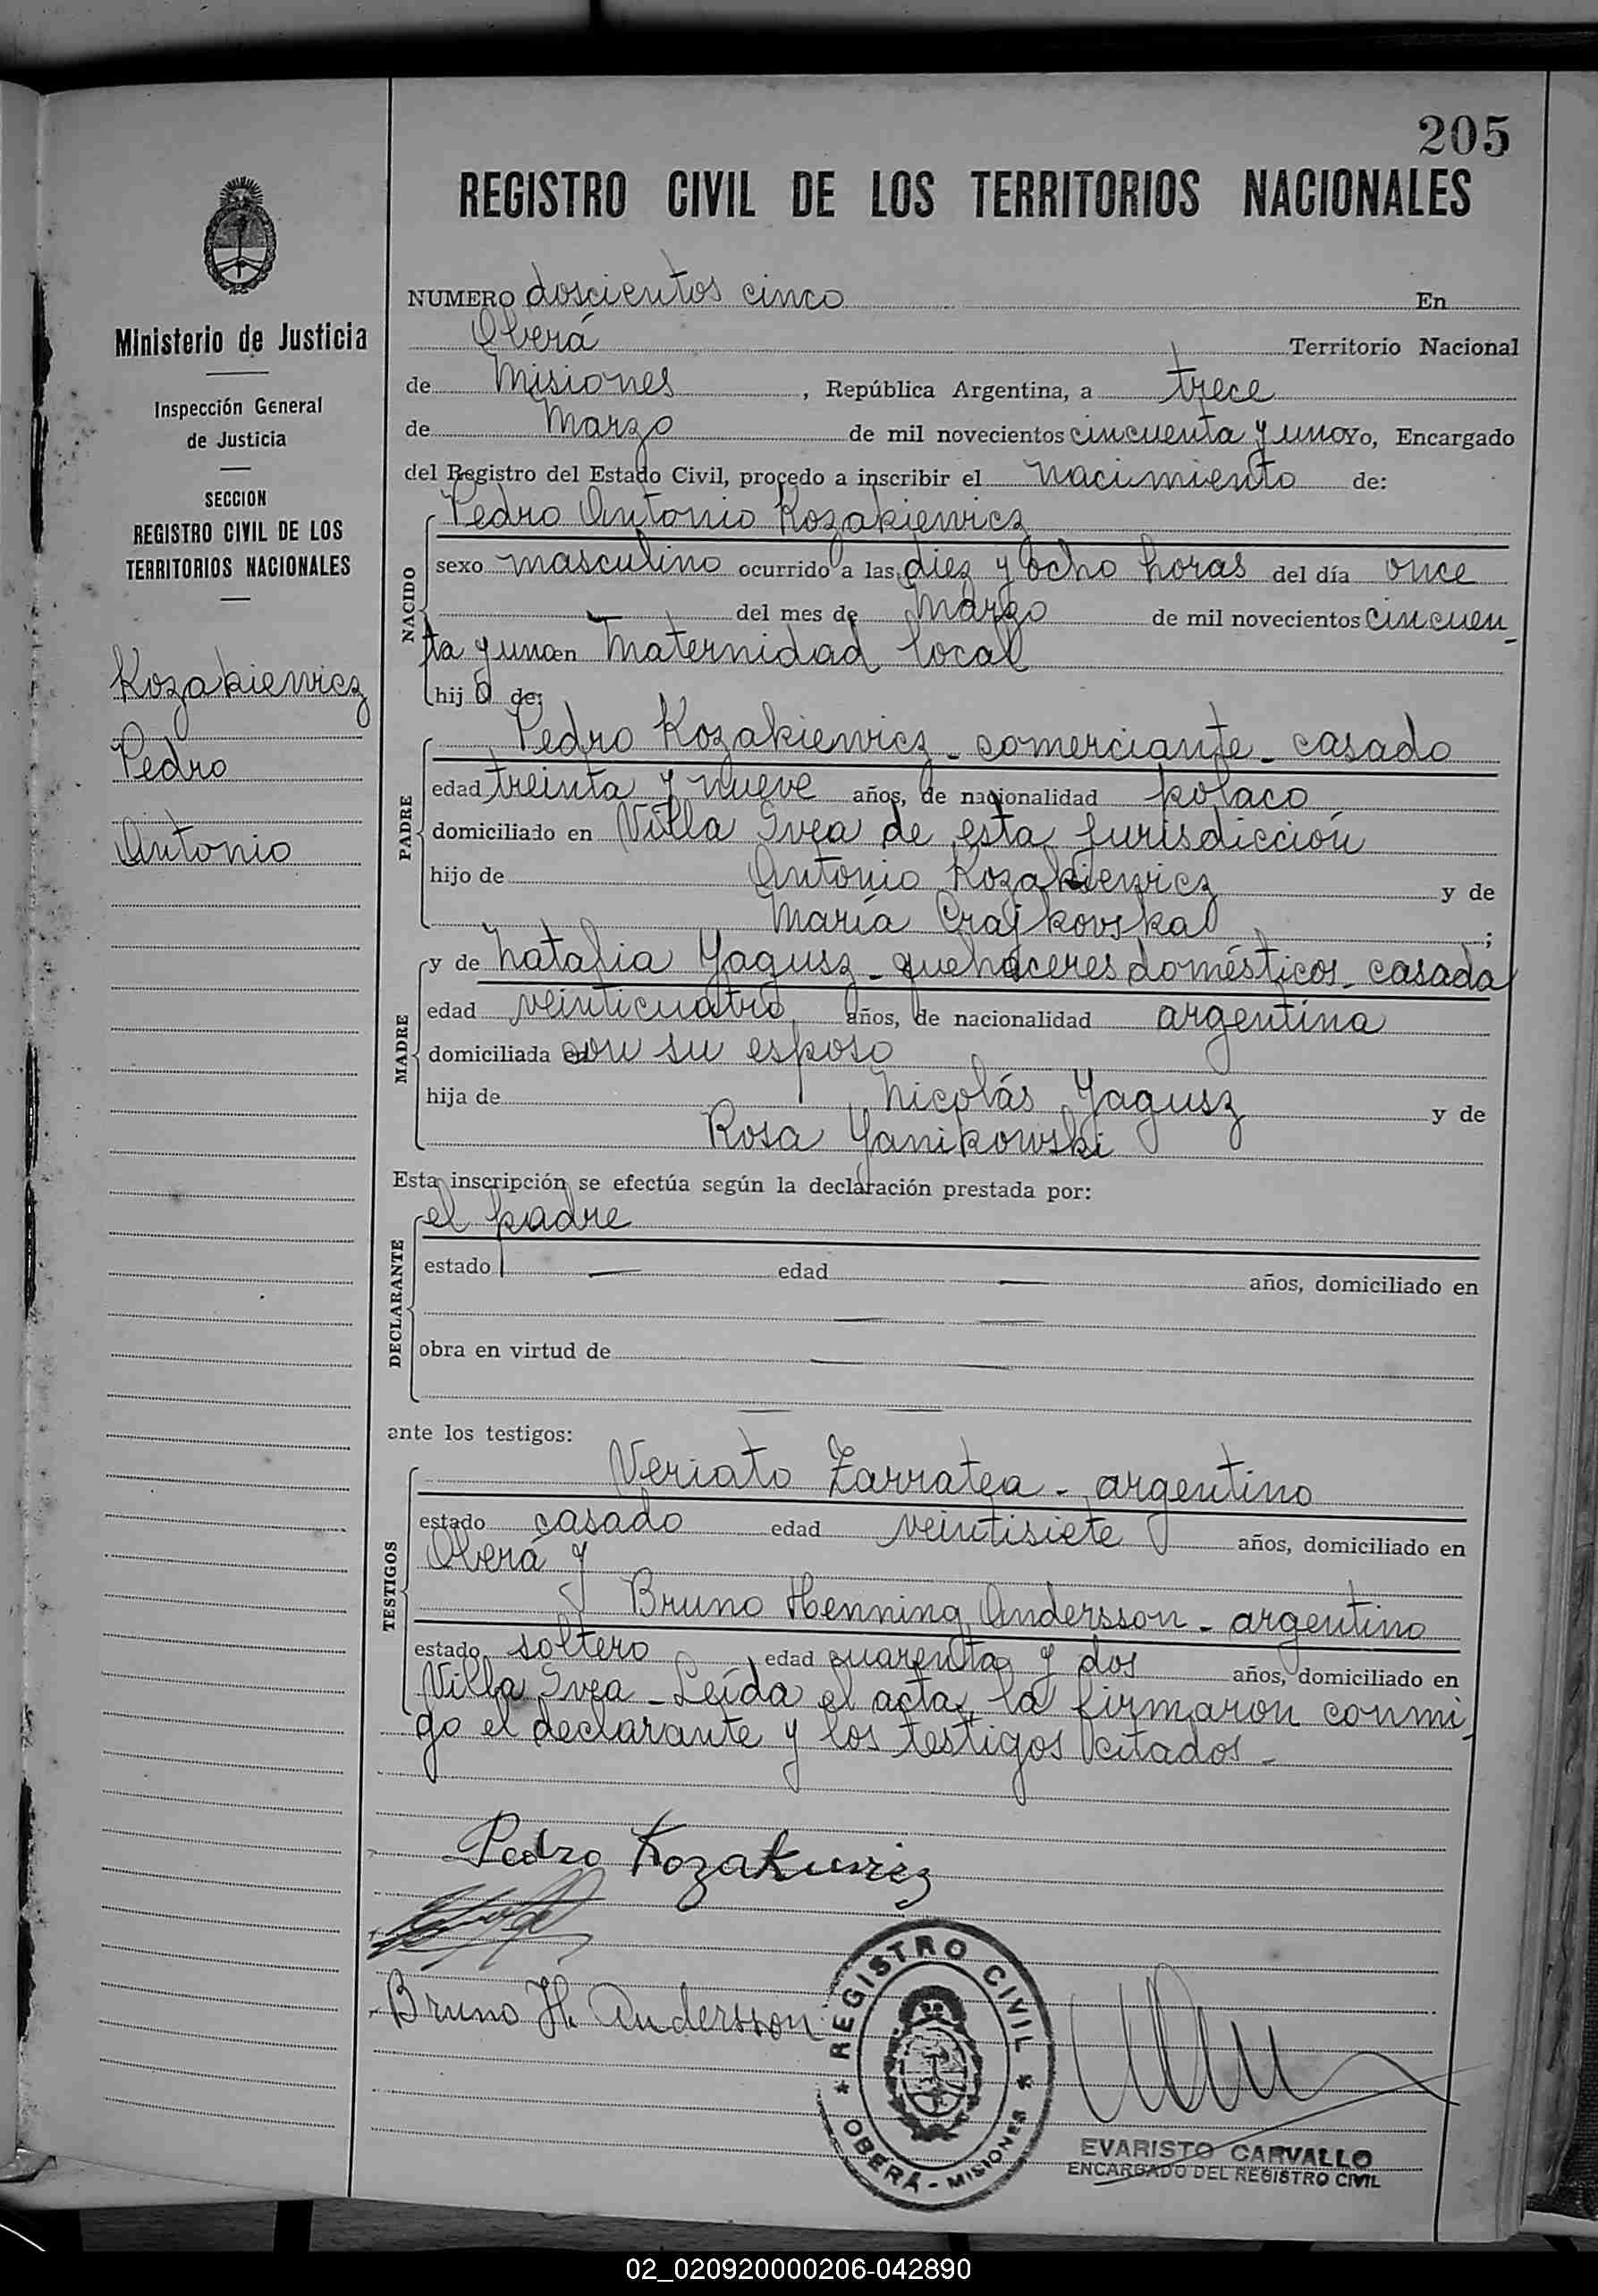 205
REGISTRO CIVIL DE LOS TERRITORIOS NACIONALES
Ministerio de Justicia
Inspección General
de Justicia
SECCION
REGISTRO CIVIL DE LOS
TERRITORIOS NACIONALES
Kozakiewicz
Pedro
Antonio
NUMERO doscientos cinco En
Oberá Territorio Nacional
de Misiones, República Argentina, a trece
de Marzo de mil novecientos cincuenta y uno Yo, Encargado
del Registro del Estado Civil, procedo a inscribir el nacimiento de:
NACIDO
Pedro Antonio Kozakiewicz
sexo masculino ocurrido a las diez y ocho horas del día once
del mes de Marzo de mil novecientos cincuen-
ta y uno en Maternidad local
hij o de:
PADRE
Pedro Kozakiewicz - comerciante - casado
edad treinta y nueve años, de nacionalidad polaco
domiciliado en Villa Svea de esta jurisdicción
hijo de Antonio Kozakiewicz y de
María Crajkovska;
MADRE
y de Natalia Yagusz - quehaceres domésticos - casada
edad veinticuatro años, de nacionalidad argentina
domiciliada en con su esposo
hija de Nicolás Yagusz y de
Rosa Yanikowski
Esta inscripción se efectúa según la declaración prestada por:
DECLARANTE
el padre
estado — edad — años, domiciliado en
obra en virtud de
ante los testigos:
TESTIGOS
Veriato Zarratea - argentino
estado casado edad veintisiete años, domiciliado en
Oberá y
Bruno Henning Andersson - argentino
estado soltero edad cuarenta y dos años, domiciliado en
Villa Svea - Leída el acta, la firmaron conmi-
go el declarante y los testigos citados -
Pedro Kozakiewicz
Bruno H. Andersson
REGISTRO CIVIL
OBERÁ - MISIONES
EVARISTO CARVALLO
ENCARGADO DEL REGISTRO CIVIL
02_020920000206-042890